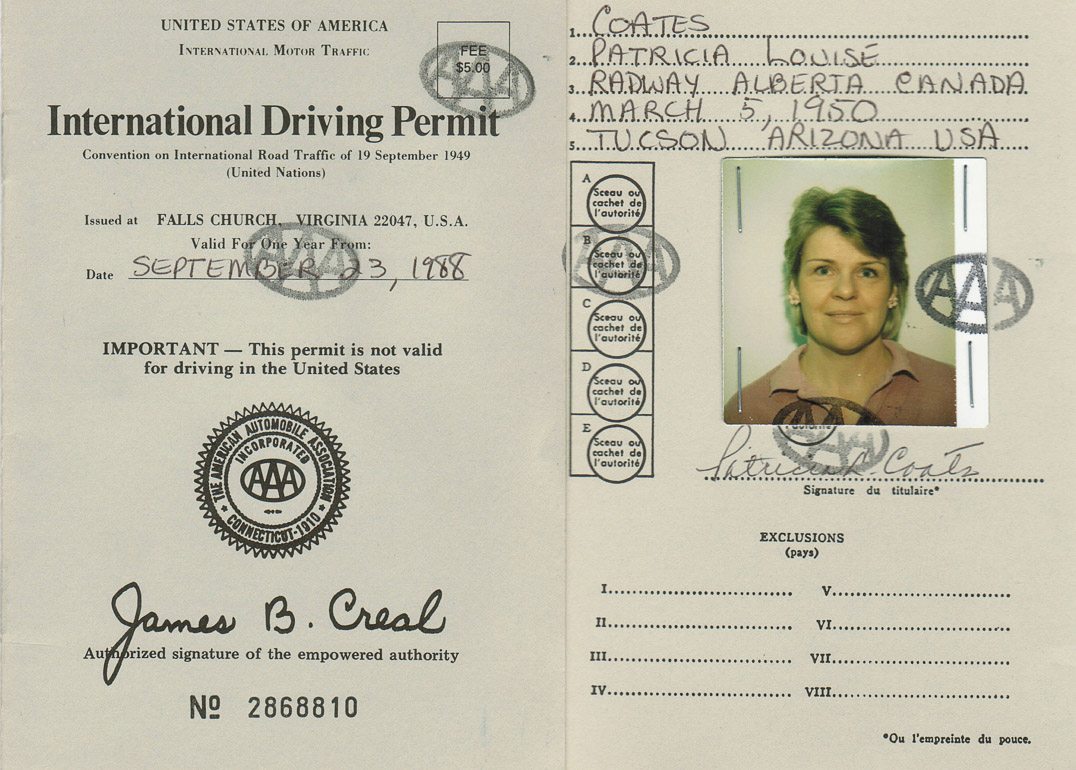 UNITED STATES OF AMERICA
INTERNATIONAL MOTOR TRAFFIC
FEE
$5.00
AAA
International Driving Permit
Convention on International Road Traffic of 19 September 1949
(United Nations)
Issued at FALLS CHURCH, VIRGINIA 22047, U.S.A.
Valid For One Year From:
AAA
Date SEPTEMBER 23, 1988
IMPORTANT — This permit is not valid
for driving in the United States
THE AMERICAN AUTOMOBILE ASSOCIATION
INCORPORATED
AAA
CONNECTICUT-1910
James B. Creal
Authorized signature of the empowered authority
Nº 2868810
1. COATES
2. PATRICIA LOUISE
3. RADWAY ALBERTA CANADA
4. MARCH 5, 1950
5. TUCSON ARIZONA USA
A
Sceau ou
cachet de
l'autorité
B
Sceau ou
cachet de
l'autorité
AAA
C
Sceau ou
cachet de
l'autorité
D
Sceau ou
cachet de
l'autorité
E
Sceau ou
cachet de
l'autorité
AAA
AAA
l'autorité
Patricia L. Coates
Signature du titulaire*
EXCLUSIONS
(pays)
I V
II VI
III VII
IV VIII
*Ou l'empreinte du pouce.